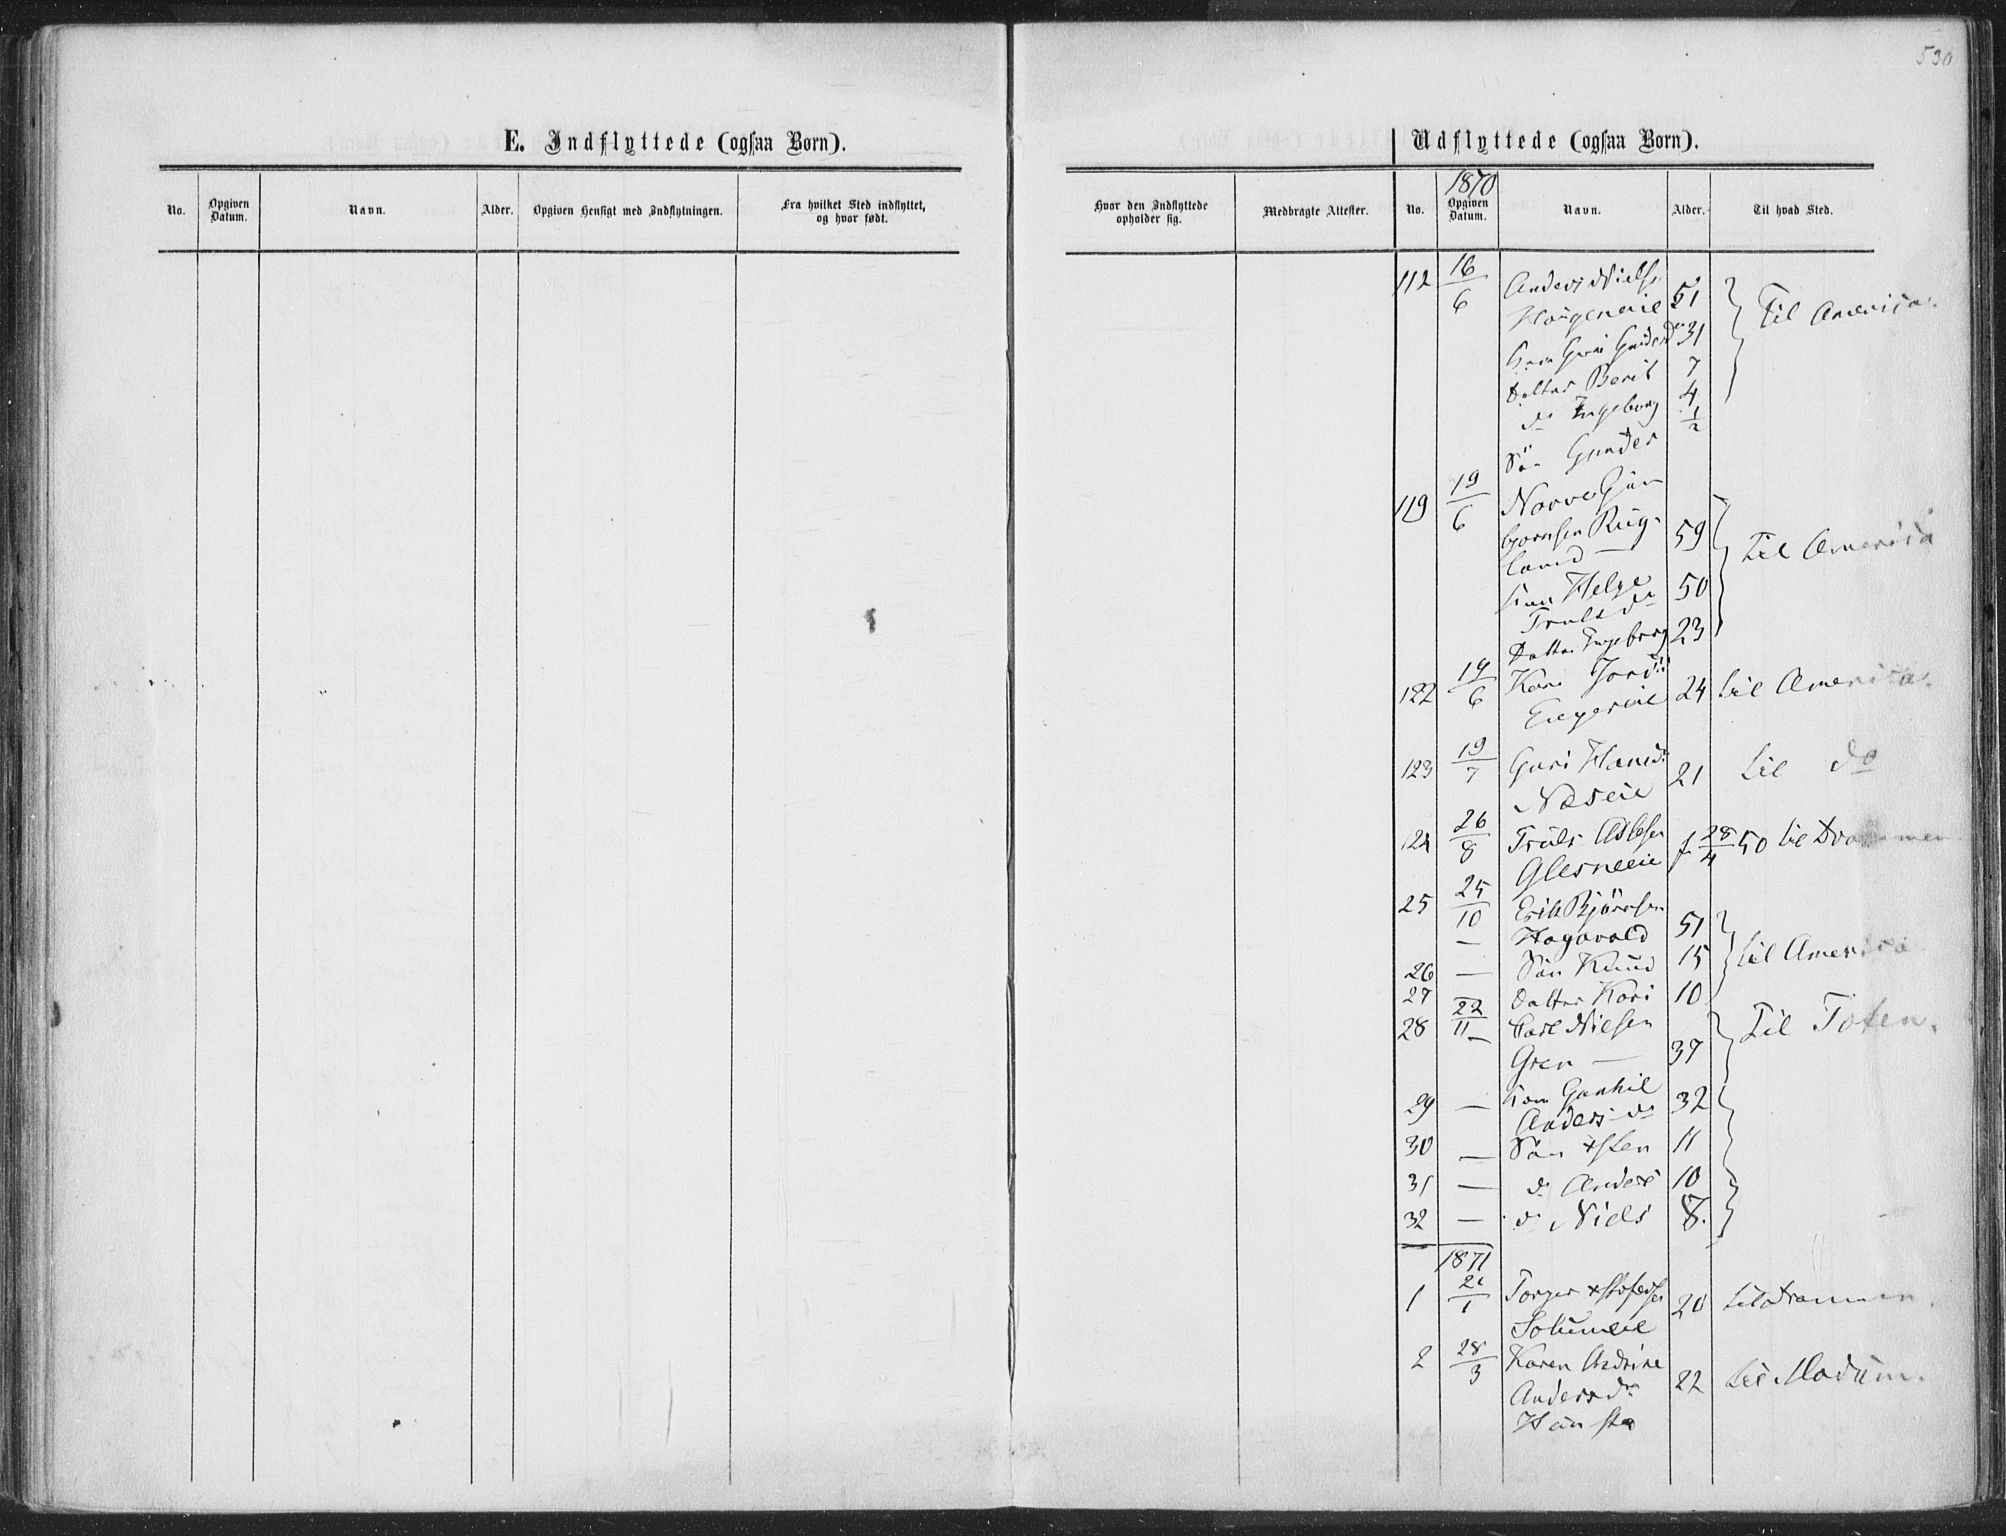 530
E. Indflyttede (ogsaa Børn).
Udflyttede (ogsaa Børn).
No. Opgiven Datum. Navn. Alder. Opgiven Hensigt med Indflytningen. Fra hvilket Sted indflyttet, og hvor født.
Hvor den Indflyttede opholder sig. Medbragte Attester. No. 1870 Opgiven Datum. Navn. Alder. Til hvad Sted.
112 16/6 Anders Niels.
Haugeneie 51 Til America.
Guri 31
Datter Berit 7
do Ingeborg 4
Søn Gunder 1/2
119 19/6 Narve Gun
bjørnsen Rug-
land — 59 til America
Kone Helge
Trulsdr 50
Datter Ingeborg 23
122 14/6 Kari
24 til America.
123 19/7 Guri Hansdr
Næseie 21 til do
124 26/8 Truls
Glesneeie f. 28/4 50 til Drammen
25 25/10 Erik Bjørnsen
— Hagavold 51
26 — Søn Knud 15 til America
27 Datter Kari 10
28 22/11 — Carl Nielsen
Gren — 37 Til Toten.
29 — Kone Gunhil
Andersdr 32
30 — Søn +sten 11
31 — do Anders 10
32 — do Niels 8.
1871
1 21/1 Torger +stofersen
Solumeie 20 til Drammen.
2 28/3 Karen Andrine
Andersdr 22 til Modum.